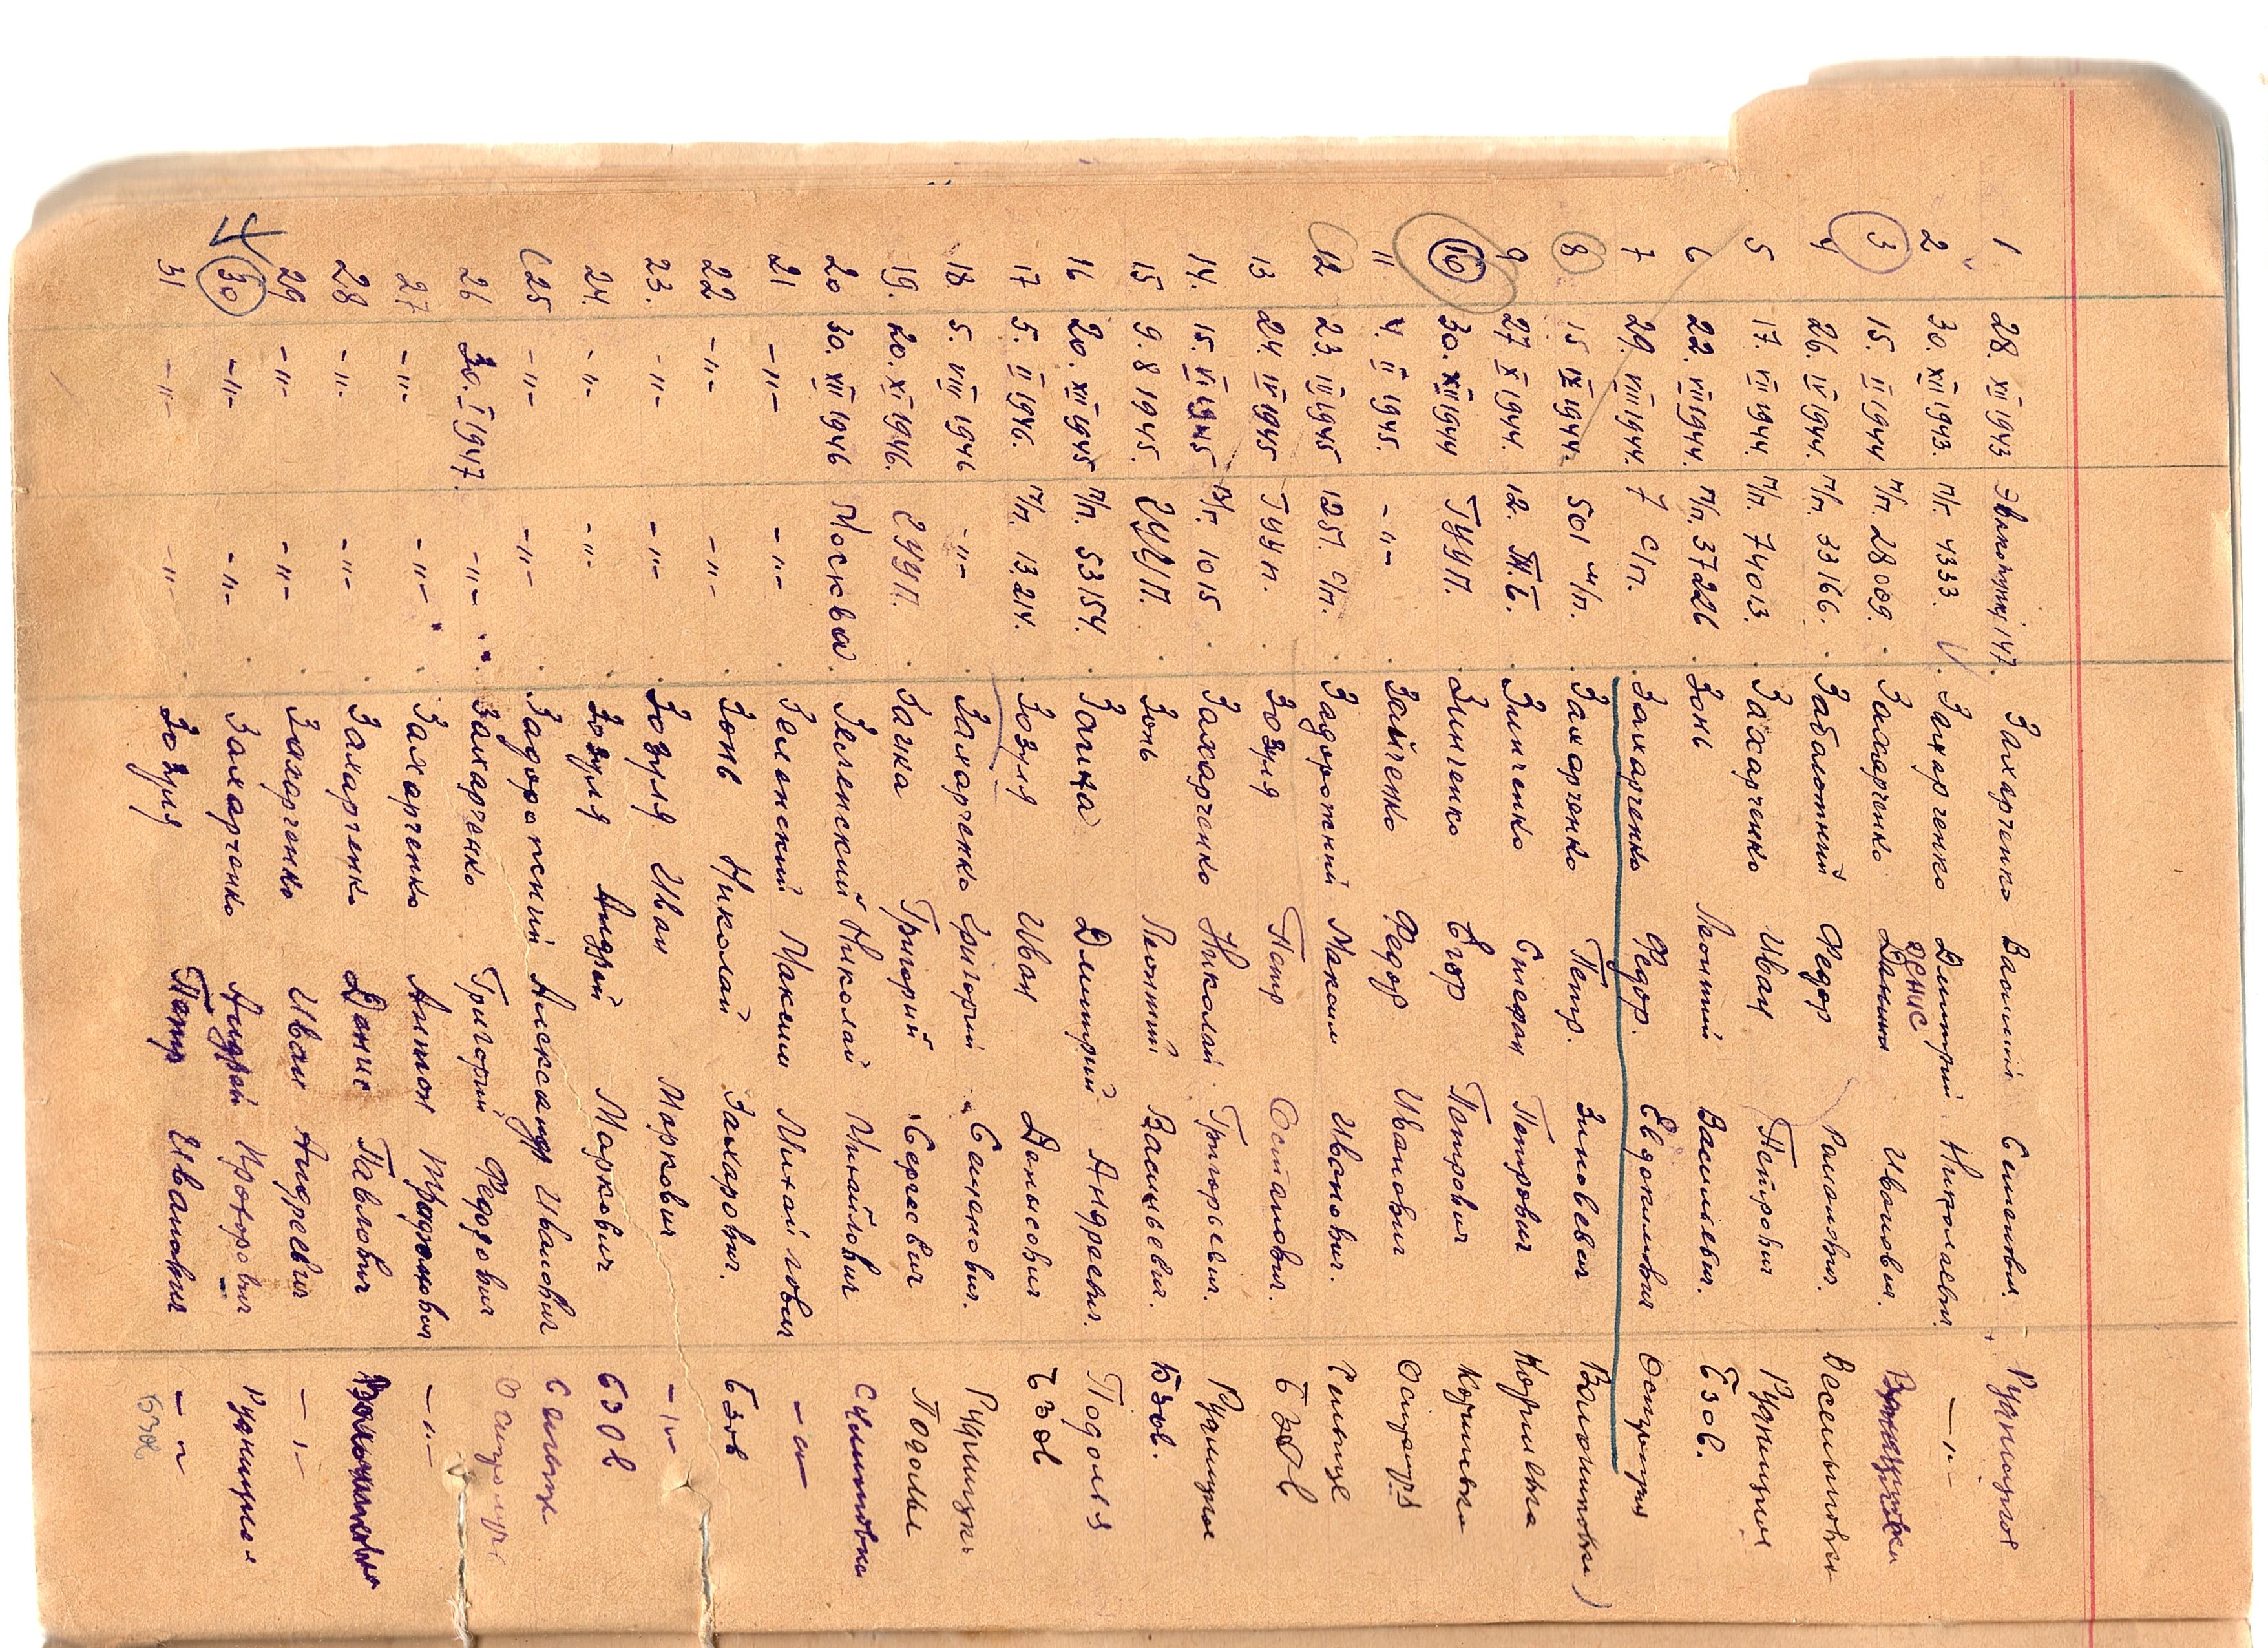 1 28. XII 1943 147. Захарченко Василий Семенович. Рудницкое
2 30. XII 1943. п/п. 4333. Захарченко Дмитрий Николаевич -"-
3 15. II 1944 п/п. 28009. Захарченко Денис Иванович.
4 26. IV 1944. п/п. 33166. Заболотний Федор Романович. Васильковка
5 17. VII 1944. п/п. 74013. Захарченко Иван Петрович Рудницкое
6 22. VII 1944. п/п. 37226 Зонь Леонтий Васильевич. Бзов.
7 29. VIII 1944. 7 с/п. Захарченко Федор. Евдокимович Остролучя
8 15 IX 1944. 501 м/п. Захарченко Петр. Зиновевич
9 27 X 1944. 12. Зинченко Степан Петрович Корниевка
10 30. XII 1944 ГУУП. Зинченко Егор Петрович Корниевка
11 4. II 1945. -"- Зайченко Федор Иванович
12 23. III 1945 1257. с/п. Задорожний Максим Иванович. Сельище
13 24. IV 1945 ГУУП. Зозуля Петр Остапович. Бзов
14. 15. VI 1945 п/п. 1015 Захарченко Николай Григорьевич. Рудницкое
15 9. 8 1945. ГУУП. Зонь Леонтий Васильевич. Бзов.
16 20. XII 1945 п/п. 53154. Загика Дмитрий Андреевич. Подолья
17 5. II 1946. п/п. 13.214. Зозуля Иван Денысович Бзов
18 5. VIII 1946 -"- Захарченко Григорий Семенович. Рудницкое
19. 20. XI 1946. ГУУП. Зачка Григорий Сергеевич Подолье
20 30. XII 1946 Москва. Зеленский Николай Михайлович
21 -"- -"- Зеленский Максим Михайлович -"-
22 -"- -"- Зонь Николай Захарович. Бзов
23. -"- -"- Зозуля Иван Маркович -"-
24. -"- -"- Зозуля Андрей Маркович Бзов
25 -"- -"- Задорожний Александр Иванович Сельище
26 30. I 1947. -"- Захарченко Григорий Федорович
27 -"- -"- Захарченко Антон Трофимович -"-
28 -"- -"- Захарченко Данис Павлович
29 -"- -"- Захарченко Иван Андреевич -"-
30 -"- -"- Захарченко Андрей Рудницкое
31 -"- -"- Зозуля Петр Иванович -"-
Бзов